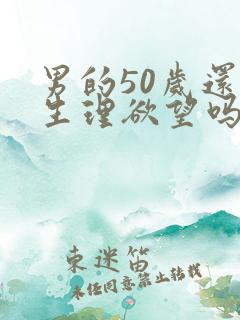 男的50歲還
生理欲望吗
東迷笛
未经同意禁止转载